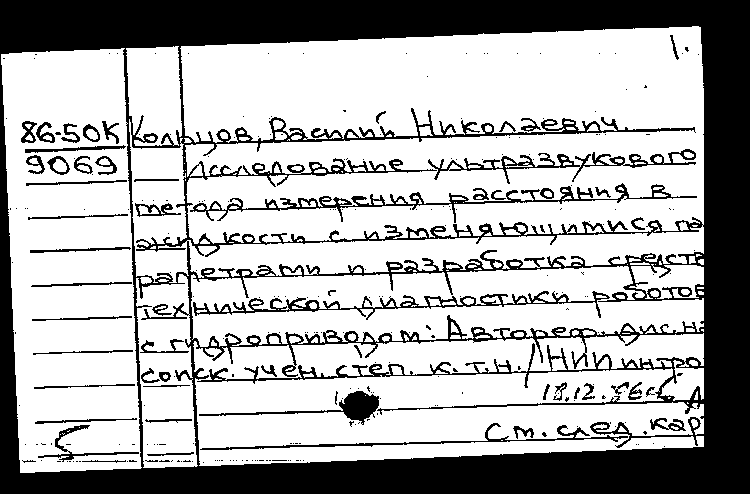 1.
86-50К Кольцов, Василий Николаевич.
9069 Исследование ультразвукового
метода измерения расстояния в
жидкости с изменяющимися па
раметрами и разработка средств
технической диагностики роботов
с гидроприводом: Автореф. дис. на
соиск. учен. степ. к.т.н. / НИИ интро
18.12.86
См. след. кар